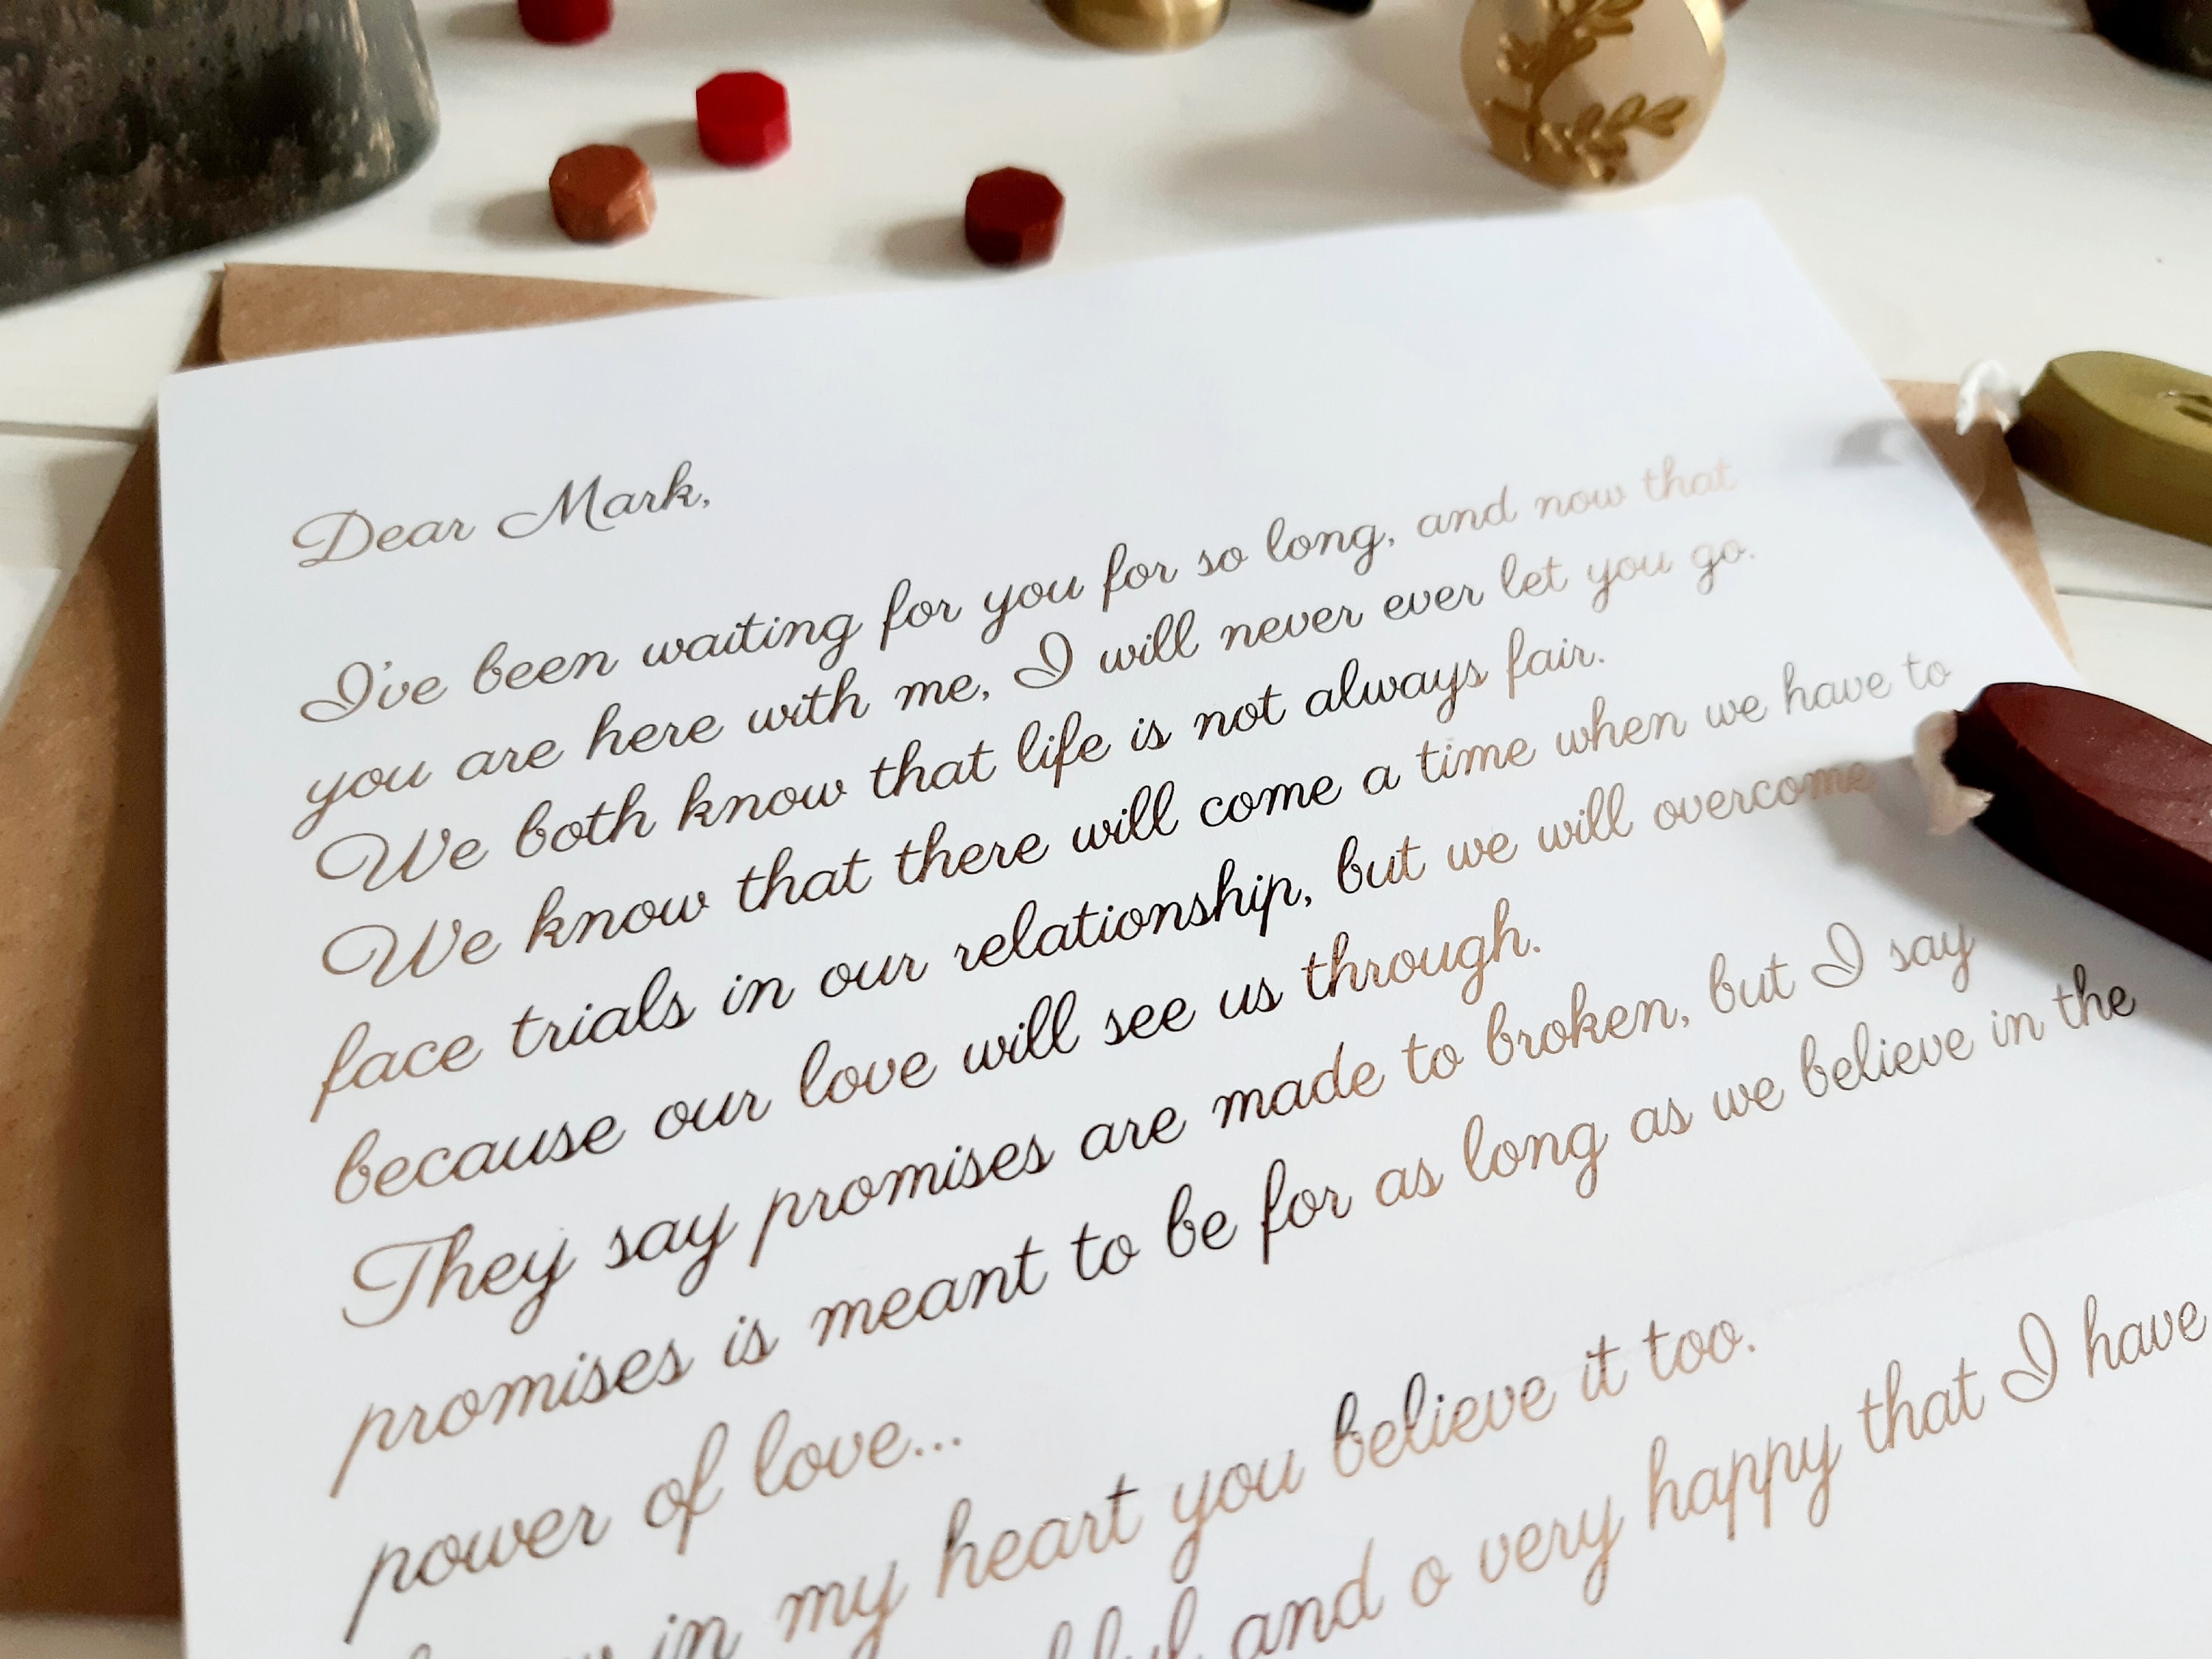 Dear Mark,
I've been waiting for you for so long, and now that
you are here with me, I will never ever let you go.
We both know that life is not always fair.
We know that there will come a time when we have to
face trials in our relationship, but we will overcome
because our love will see us through.
They say promises are made to broken, but I say
promises is meant to be for as long as we believe in the
power of love...
in my heart you believe it too.
and o very happy that I have